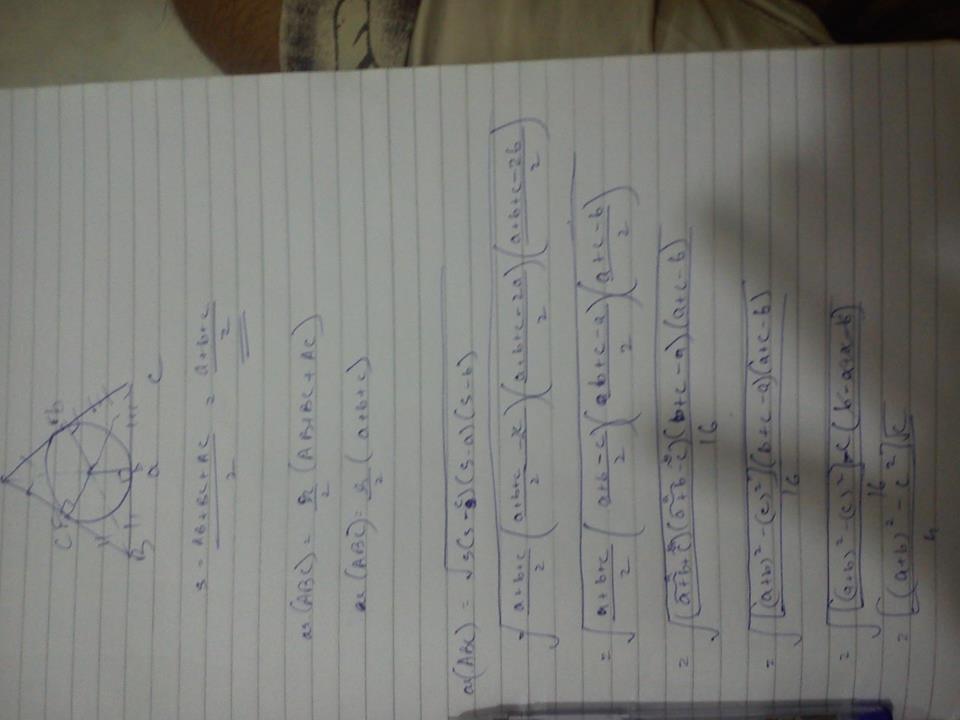 C F b
B a C
s = AB+BC+AC / 2 = a+b+c / 2
ar(ABC) = r/2 (AB+BC+AC)
ar(ABC) = r/2 (a+b+c)
ar(ABC) = √s(s-c)(s-a)(s-b)
= √(a+b+c / 2)(a+b+c / 2 - c)(a+b+c-2a / 2)(a+b+c-2b / 2)
= √(a+b+c / 2)(a+b-c / 2)(b+c-a / 2)(a+c-b / 2)
= √(a+b+c)(a+b-c)(b+c-a)(a+c-b) / 16
= √[(a+b)²-(c)²](b+c-a)(a+c-b) / 16
= √[(a+b)²-(c)²]
= √[(a+b)²-c²]
4